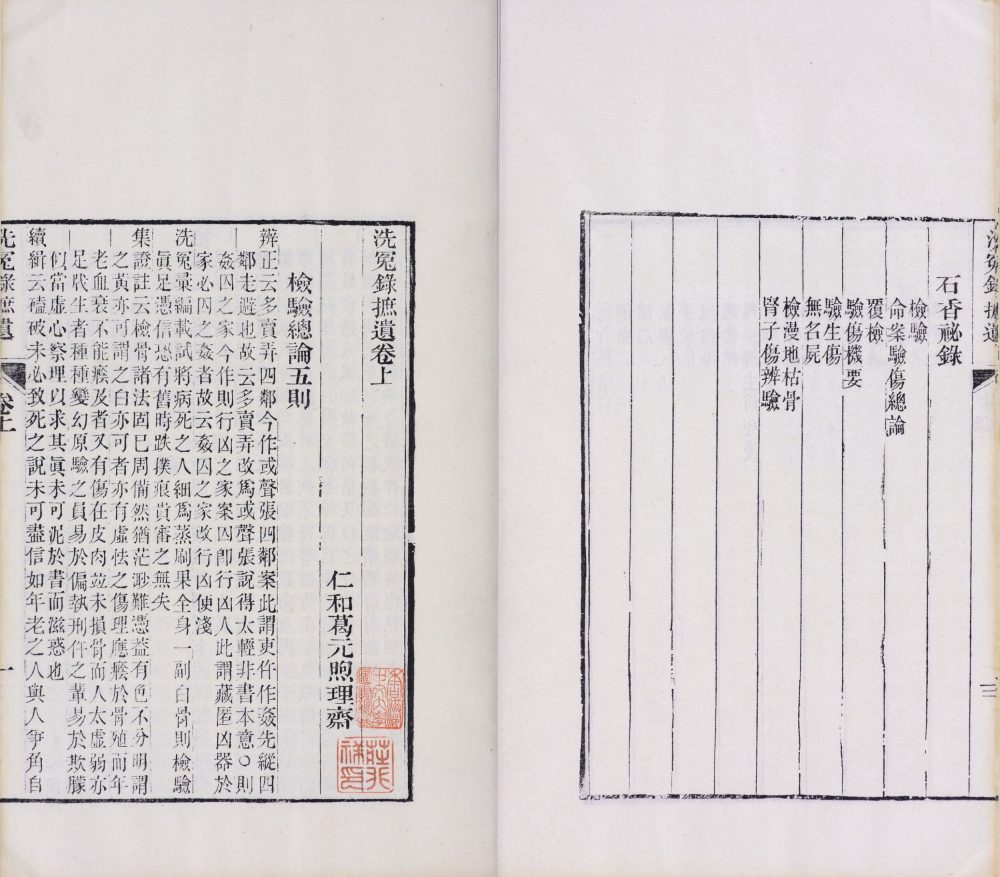 洗冤錄摭遺
三
石香祕錄
檢驗
命案驗傷總論
覆檢
驗傷機要
驗生傷
無名屍
檢漫地枯骨
腎子傷辨驗
洗冤錄摭遺卷上
仁和葛元煦理齋
檢驗總論五則
辨正云多賣弄四鄰今作或聲張四鄰案此謂吏仵作姦先縱四
鄰走避也故云多賣弄改爲或聲張說得太輕非書本意○則
姦囚之家今作則行凶之家案囚卽行凶人此謂藏匿凶器於
家必囚之姦者故云姦囚之家改行凶便淺
洗冤彙編載試將病死之人細爲蒸刷果全身一副白骨則檢驗
眞足憑信恐有舊時跌撲痕貴審之無失
集證註云檢骨諸法固已周備然猶茫渺難憑益有色不分明謂
之黃亦可謂之白亦可者亦有虛怯之傷理應瘀於骨殖而年
老血衰不能瘀及者又有傷在皮肉竝未損骨而人太虛弱亦
足戕生者種種變幻原驗之員易於偏執刑仵之輩易於欺朦
似當虛心察理以求其眞未可泥於書而滋惑也
續緝云磕破未必致死之說未可盡信如年老之人與人爭角自
洗冤錄摭遺
卷上
一